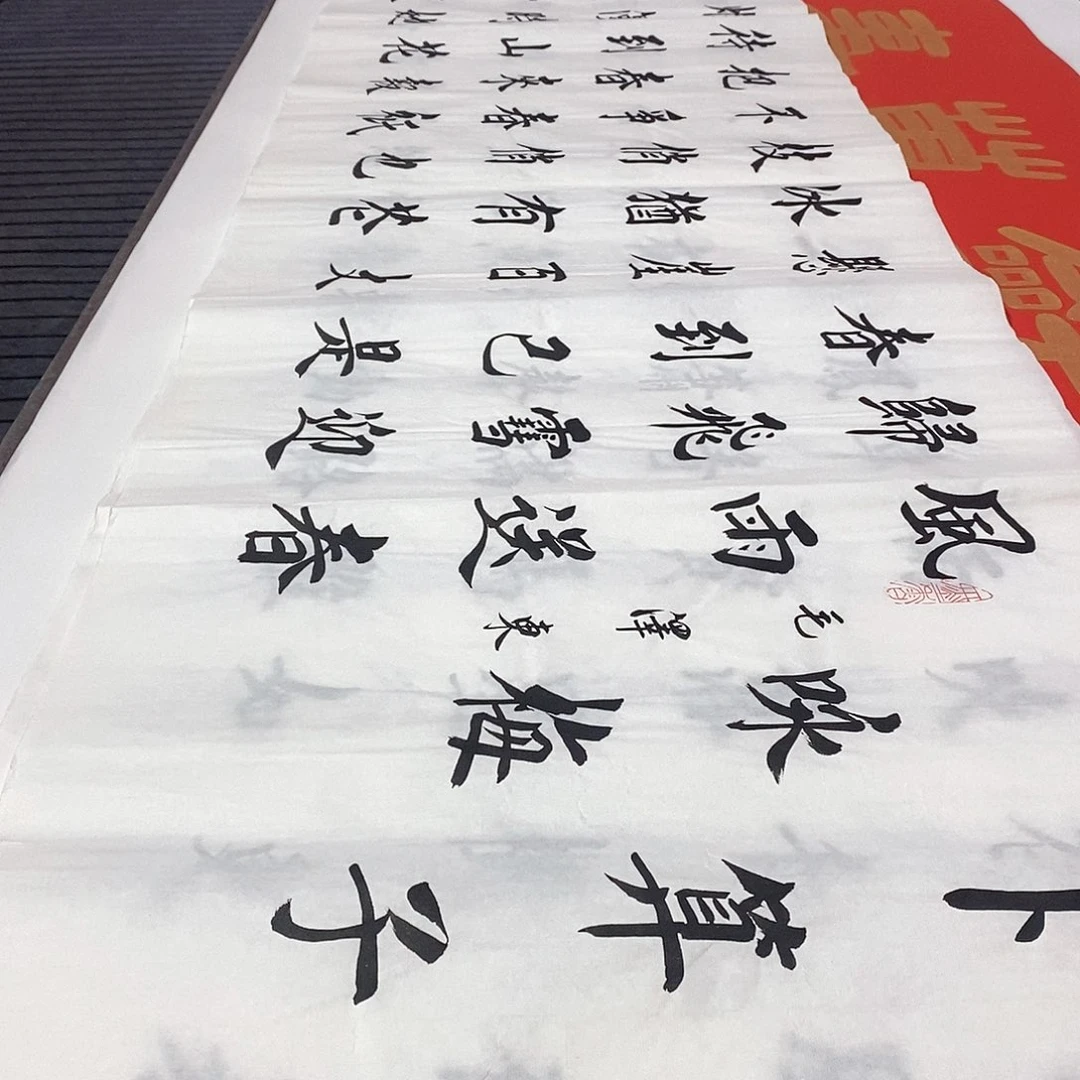 卜算子
咏梅
毛澤東
風雨送春
歸飛雪迎
春到已是
懸崖百丈
冰猶有花
枝俏俏也
不爭春衹
把春來報
待到山花
時她